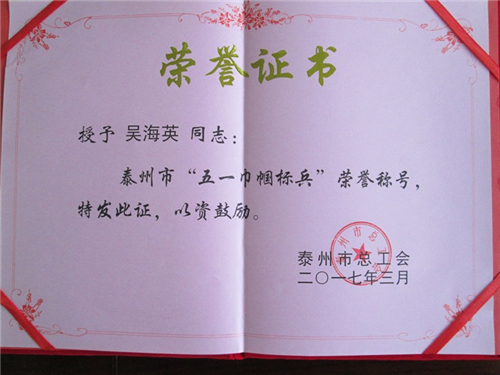 荣誉证书
授予 吴海英 同志：
泰州市“五一巾帼标兵”荣誉称号，
特发此证，以资鼓励。
泰州市总工会
二〇一七年三月